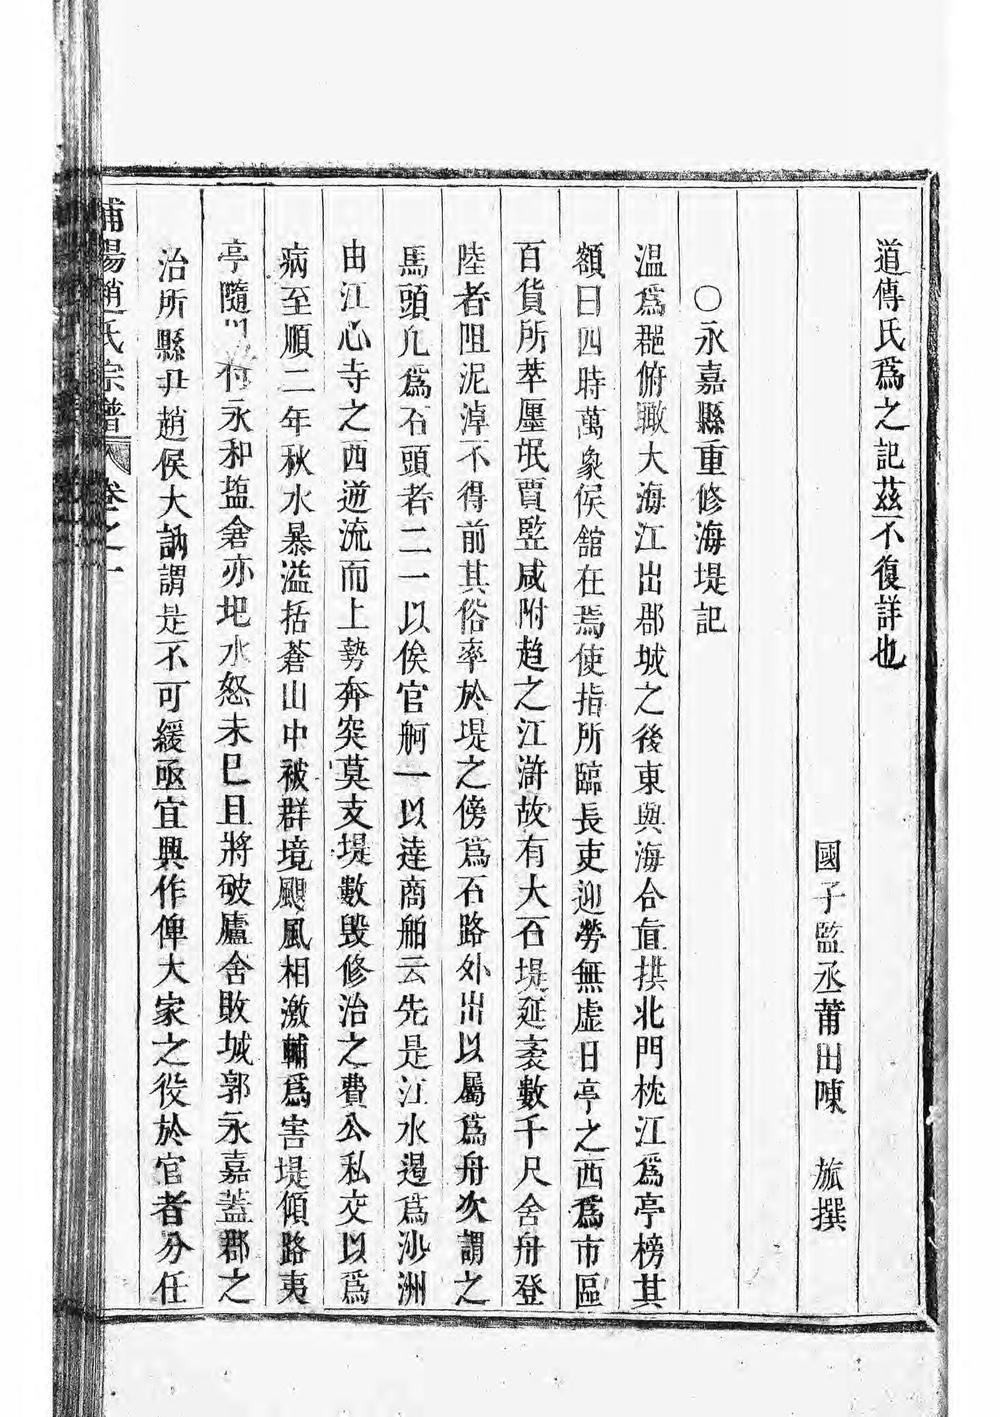 道傳氏爲之記茲不復詳也
國子監丞莆田陳 旅撰
〇永嘉縣重修海堤記
温爲郡俯瞰大海江出郡城之後東與海合直拱北門枕江爲亭榜其
額曰四時萬象候館在焉使指所臨長吏迎勞無虛日亭之西爲市區
百貨所萃廛氓賈竪咸附趋之江滸故有大石堤延袤數千尺舍舟登
陸者阻泥淖不得前其俗率於堤之傍爲石路外出以屬爲舟次謂之
馬頭凢爲石頭者二一以俟官舸一以逹商舶云先是江水遏爲沙洲
由江心寺之西逆流而上勢奔突莫支堤數毁修治之費公私交以爲
病至順二年秋水暴溢括蒼山中被群境颶風相激輔爲害堤傾路夷
亭隨 永和塩倉亦圯水怒未巳且將破廬舍敗城郭永嘉蓋郡之
治所縣尹趙侯大訥謂是不可緩亟宜興作俾大家之役於官者分任
浦陽趙氏宗譜 卷之一